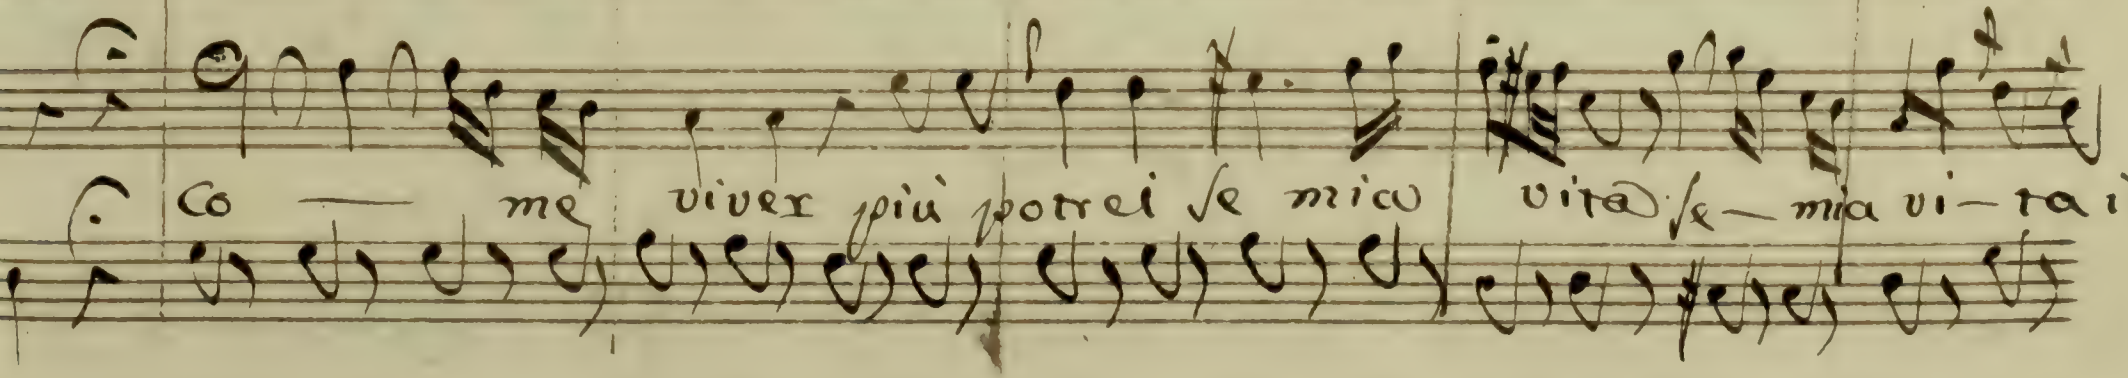 Co — me viver più potrei se mia vita se — mia vi — ta i